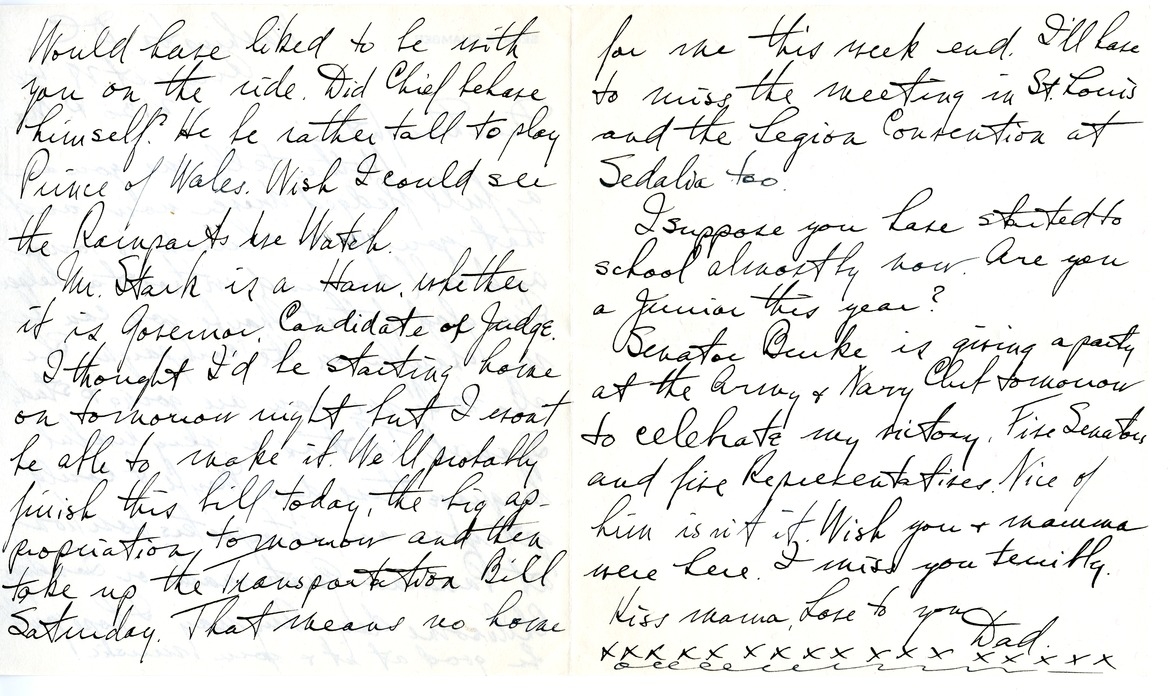 Would have liked to be with
you on the ride. Did Chief behave
himself? He be rather tall to play
Prince of Wales. Wish I could see
the Ramparts We Watch.
Mr. Stark is a Ham, whether
it is Governor, Candidate or Judge.
I thought I'd be starting home
on tomorrow night but I won't
be able to make it. We'll probably
finish this bill today, the big ap-
propriation, tomorrow and then
take up the Transportation Bill
Saturday. That means no home
for me this week end. I'll have
to miss the meeting in St. Louis
and the Legion Convention at
Sedalia too.
I suppose you have started to
school almostly now. Are you
a Junior this year?
Senator Burke is giving a party
at the Army & Navy Club tomorrow
to celebrate my victory. Five Senators
and five Representatives. Nice of
him isn't it. Wish you & mamma
were here. I miss you terribly.
Kiss mama, Love to you
Dad.
xxx xx x x x x x x x x x x x x x x